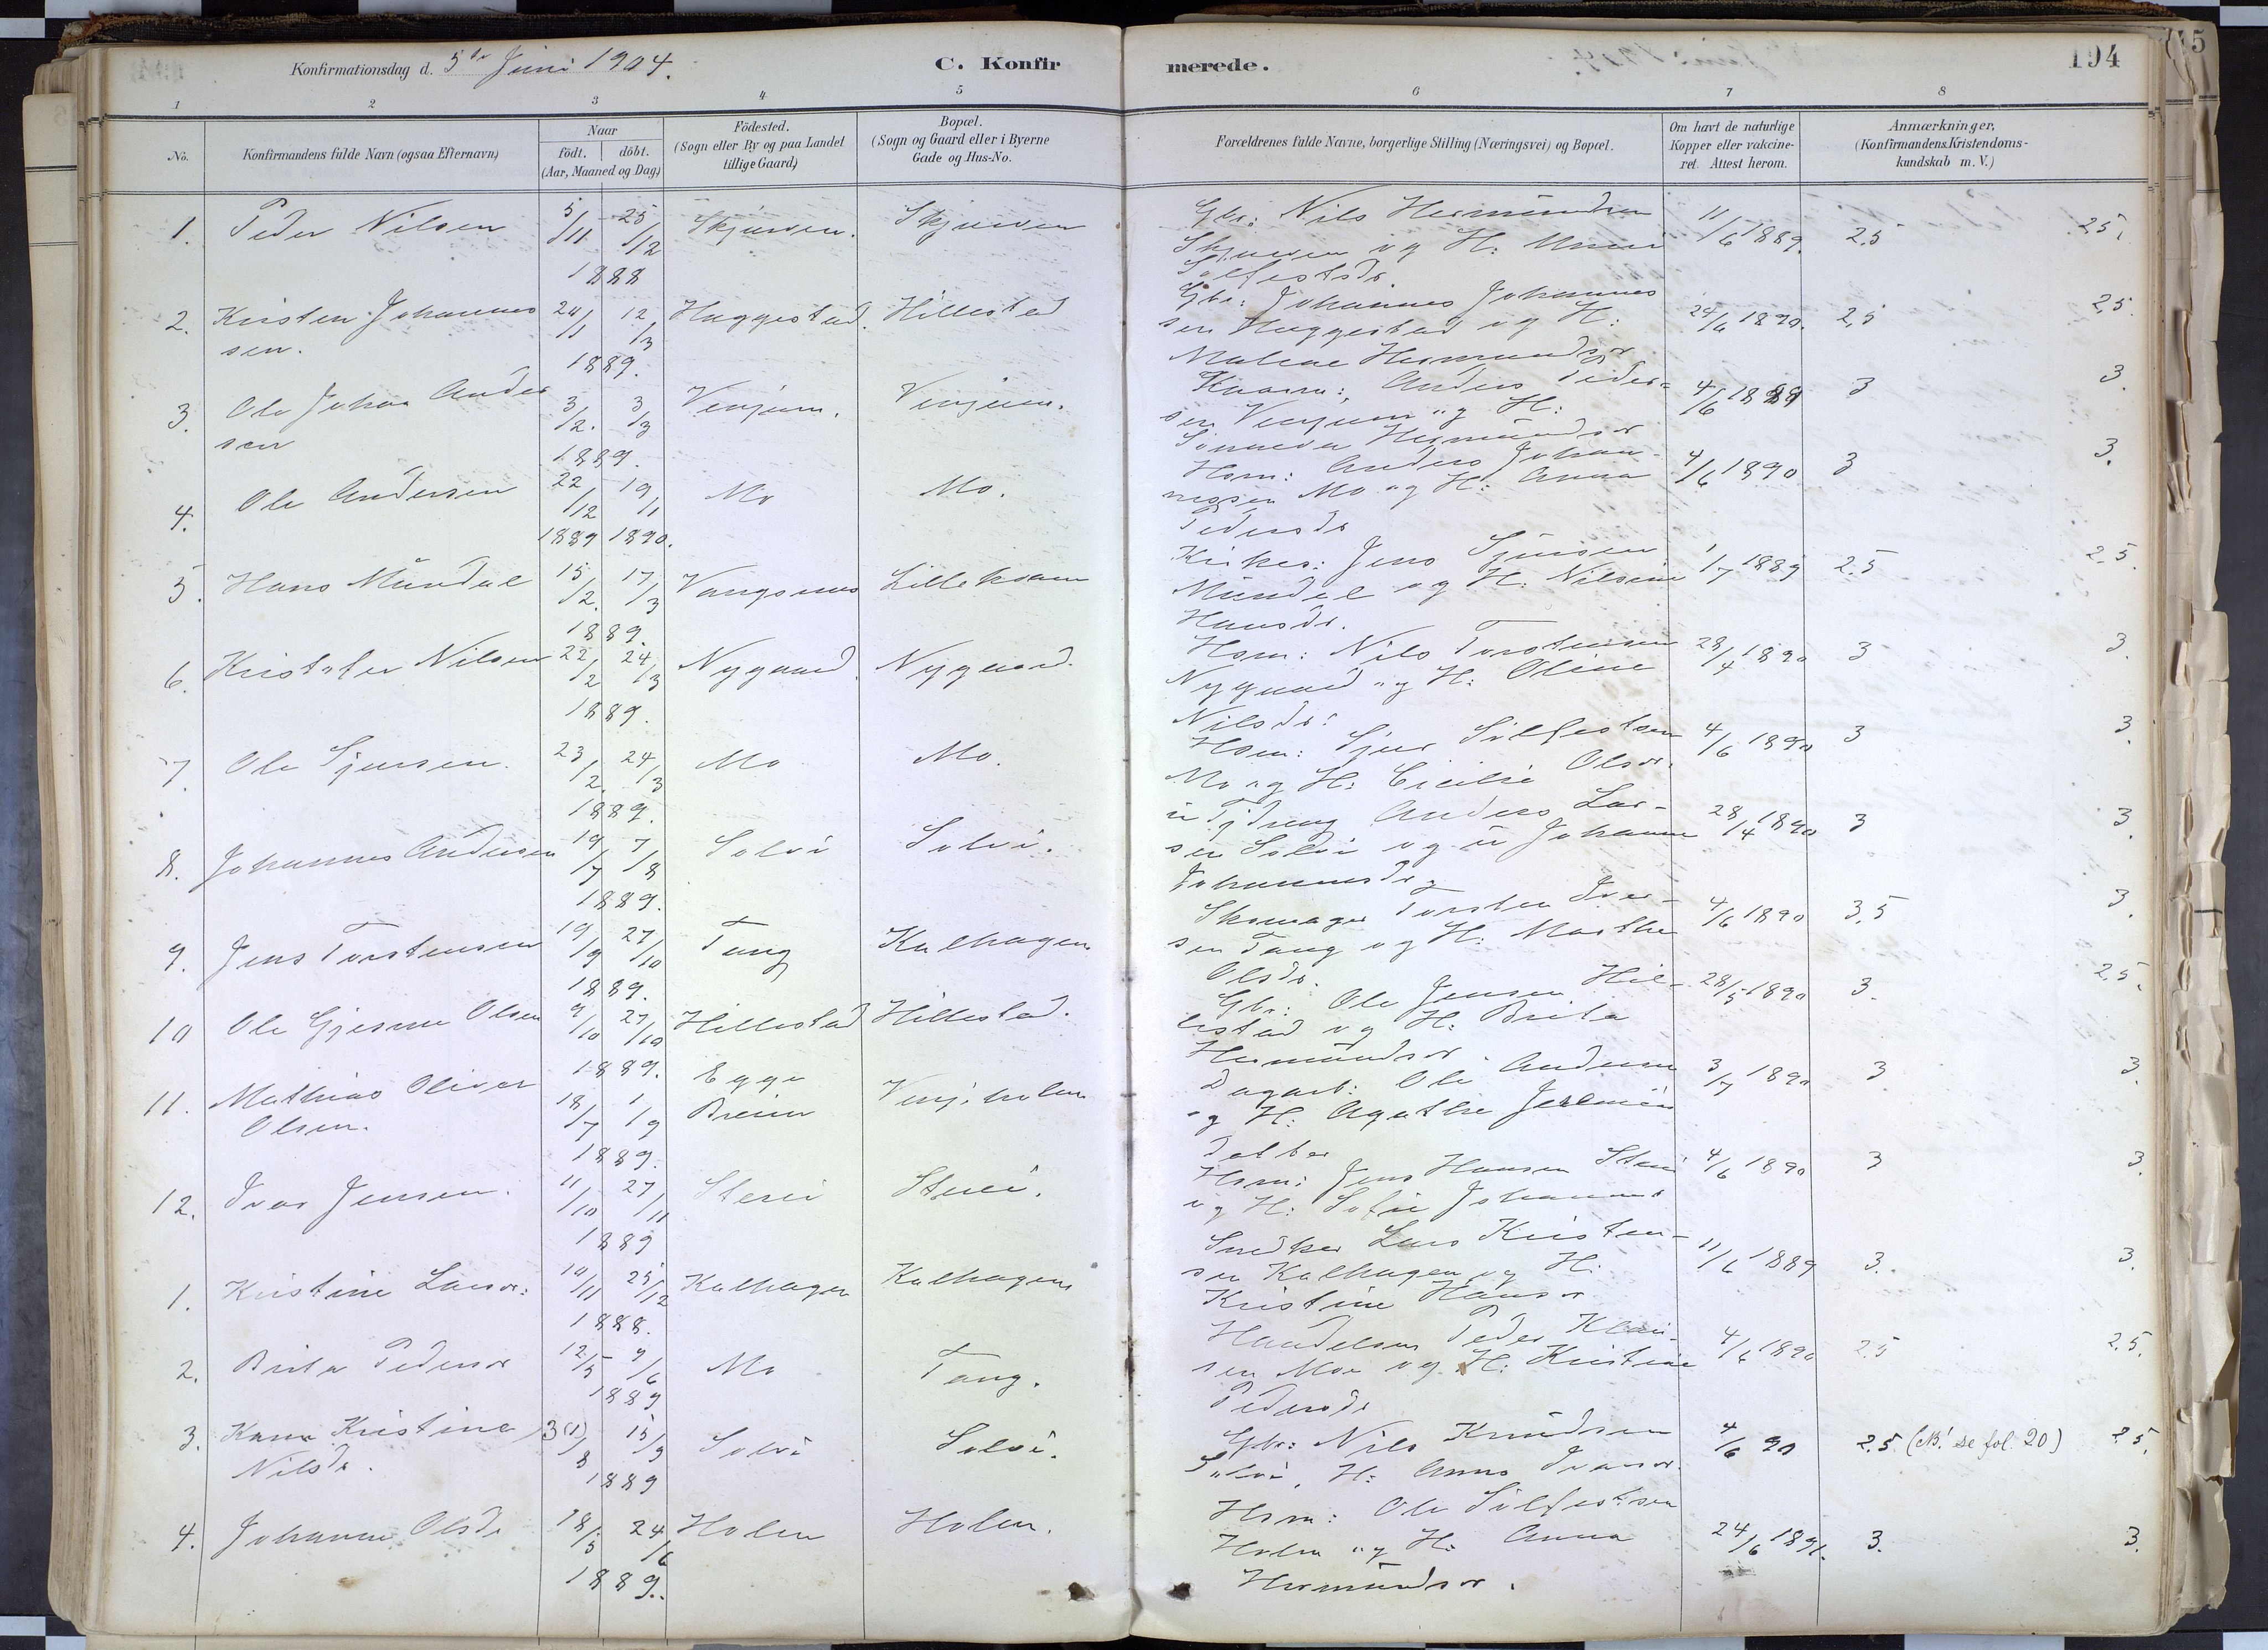 Konfirmationsdag d. 5te Juni 1904.
C. Konfir
merede.
194
1 2 3 4 5 6 7 8
No.
Konfirmandens fulde Navn (ogsaa Efternavn)
Naar
födt. döbt.
(Aar, Maaned og Dag)
Födested.
(Sogn eller By og paa Landet
tillige Gaard)
Bopæl.
(Sogn og Gaard eller i Byerne
Gade og Hus-No.
Forældrenes fulde Navne, borgerlige Stilling (Næringsvei) og Bopæl.
Om havt de naturlige
Kopper eller vakcine-
ret. Attest herom.
Anmærkninger,
(Konfirmandens Kristendoms-
kundskab m. V.)
1. Peder Nilsen 5/11 25/12 1888 Skjurven. Skjurven
Gbr: Nils Hermundsen
Skjurven og H: Unni
Sølfestsdr. 11/6 1889. 2.5 2.5.
2. Kristen Johannes
sen. 24/1 12/3 1889. Huggestad. Hillestad
Gbr: Johannes Johannes
sen Huggestad og H:
Malene Hermundsdr 24/6 1890. 2,5 2.5.
3. Ole Johan Ander
sen 3/2. 3/3 1889. Venjum. Venjum.
Anders Peder-
sen Venjum og H:
Sønneva Hermundsdr 4/6 1889 3 3.
4. Ole Andersen 22/12 1889 19/1 1890. Mo Mo.
Hsm: Anders Johan-
nessen Mo og H: Anna
Pedersdr 4/6 1890 3 3.
5. Hans Mundal 15/2. 17/3 1889. Vangsnes Lillekvam
Kirkes: Jens Sjursen
Mundal og H: Nilsine
Hansdr. 1/7 1889 2.5 2.5.
6. Kristofer Nilsen 22/2 24/3 1889. Nygaard. Nygaard.
Hsm: Nils Torstensen
Nygaard og H: Oline
Nilsdr: 28/4 1890 3 3.
7. Ole Sjursen. 23/2. 24/3 1889. Mo Mo.
Hsm: Sjur Sølfestsen
Mo og H: Cicilie Olsdr. 4/6 1890 3 3.
8. Johannes Andersen 19/7 7/8 1889. Solvi Solvi.
Anders Lar-
sen Solvi og Johanne
Johannesdr 28/4 1890 3 3.
9. Jens Torstensen 19/9 27/10 1889. Tang Kalhagen
Skomager Torsten Iver-
sen Tang og H: Marthe
Olsdr. 4/6 1890 3,5 3.
10 Ole Gjesme Olsen 9/10 27/10 1889. Hillestad Hillestad.
Gbr: Ole Jensen Hil-
lestad og H: Brita
Hermundsdr 28/5 1890 3. 2.5.
11. Mathias Oliver
Olsen. 18/7 1/9 1889. Egge
Breim
Dagarb: Ole Andersen
og H: Agathe
datter 3/7 1890 3 3.
12. Ivar Jensen. 11/10 27/11 1889 Steri Steri.
Hsm: Jens Hansen Steri
og H: Sofie Johannes 4/6 1890 3 3.
1. Kristine Larsdr: 10/11 25/12 1888. Kalhagen Kalhagen
Snedker Lars Kristen-
sen Kalhagen og H:
Kristine Hansdr 11/6 1889 3. 3.
2. Brita Pedersdr 12/5 9/6 1889 Mo Tang.
Handelsm Peder
sen Moe og H: Kristine
Pedersdr 4/6 1890 2.5 2.5.
3. Kristine
Nilsdr. 3(1)/8 15/9 1889 Solvi Solvi.
Gbr: Nils Knudsen
Solvi, H: Anna Ivarsdr. 4/6 90 2.5. (NB! se fol. 20) 2.5.
4. Johanne Olsdr 18/5 24/6 1889. Holen Holen.
Hsm: Ole Sølfestsen
Holen og H: Anna
Hermundsdr. 24/6 1891. 3. 3.